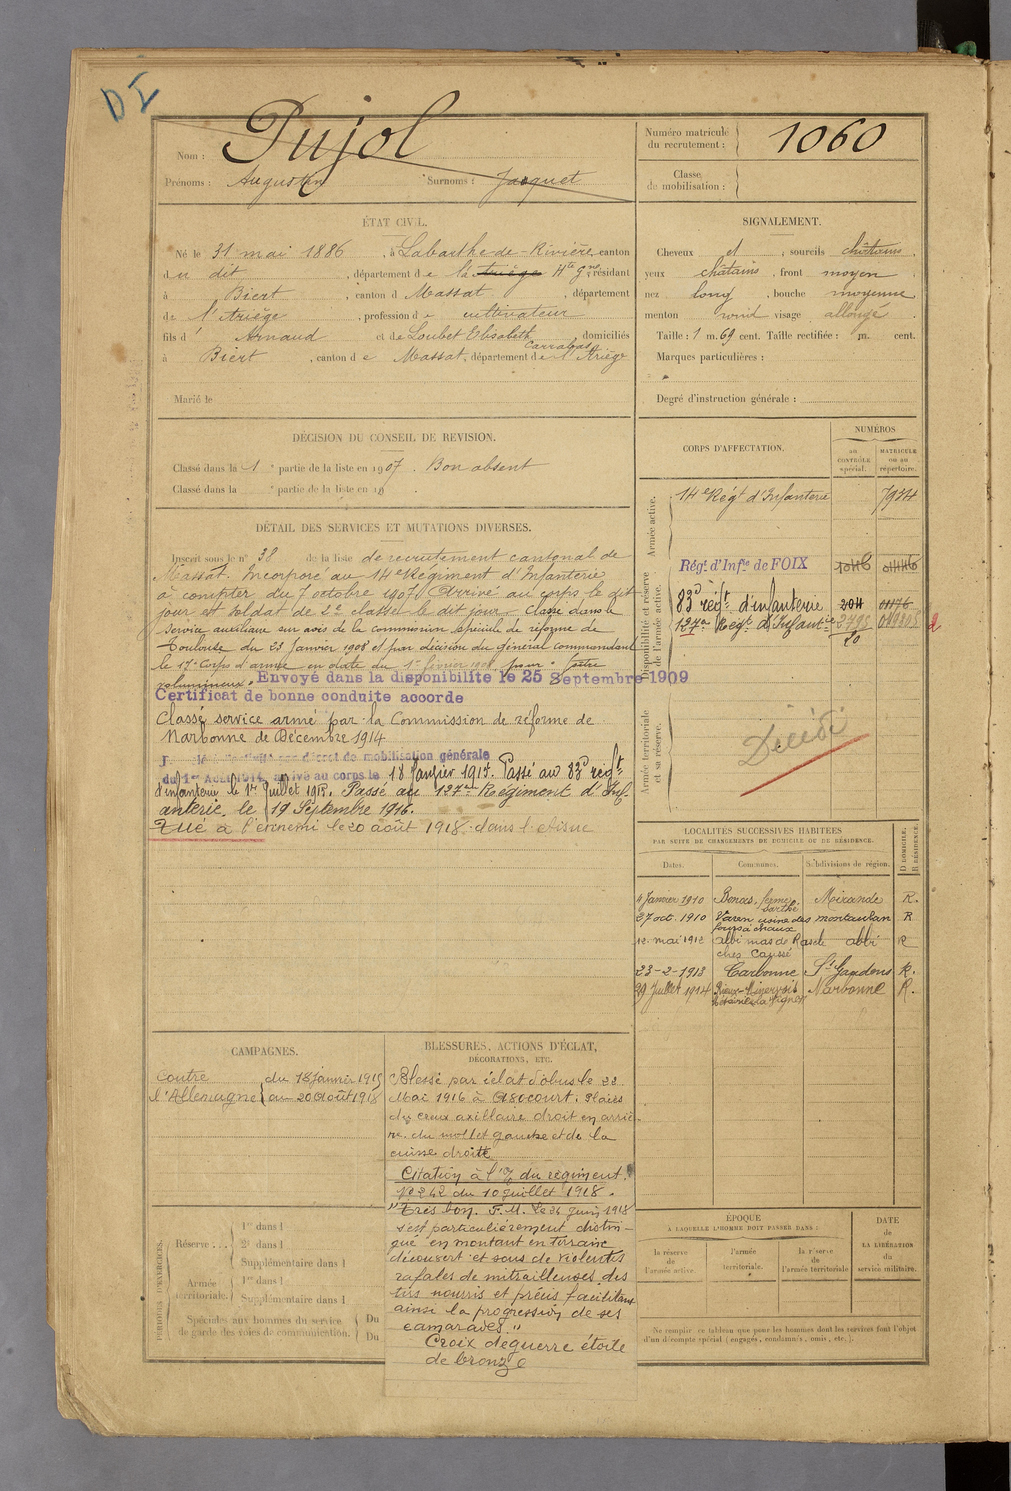 D I
Nom : Pujol
Prénoms : Augustin Surnoms : Jacquet
Numéro matricule du recrutement : 1060
Classe de mobilisation :
ÉTAT CIVIL.
Né le 31 mai 1886, à Labarthe-de-Rivière, canton
du dit, département de l'a Ariège Hte Gne, résidant
à Biert, canton d Massat, département
de l'Ariège, profession de cultivateur
fils d' Arnaud et de Loubet Elisabeth, domiciliés
à Biert, canton de Massat, département de l'Ariège
Marié le
SIGNALEMENT.
Cheveux et sourcils châtains,
yeux châtains, front moyen
nez long, bouche moyenne
menton rond visage allongé
Taille : 1 m. 69 cent. Taille rectifiée : m. cent.
Marques particulières :
Degré d'instruction générale :
DÉCISION DU CONSEIL DE REVISION.
Classé dans la 1e partie de la liste en 1907. Bon absent
Classé dans la e partie de la liste en 19 .
DÉTAIL DES SERVICES ET MUTATIONS DIVERSES.
Inscrit sous le n° 38 de la liste de recrutement cantonal de
Massat. Incorporé au 14e Régiment d'Infanterie
à compter du 7 octobre 1907. Arrivé au corps le dit
jour et soldat de 2e classe le dit jour. Classé dans le
service auxiliaire sur avis de la commission spéciale de réforme de
Toulouse du 23 Janvier 1908 et par décision du général commandant
le 17e Corps d'armée en date du 1er février 1908, pour "goître
volumineux". Envoyé dans la disponibilité le 25 Septembre 1909
Certificat de bonne conduite accordé
Classé service armé par la Commission de réforme de
Narbonne de Décembre 1914
décret de mobilisation générale
du 1er Août 1914, arrivé au corps le 18 Janvier 1915. Passé au 83e régt
d'infanterie le 1er Juillet 1915. Passé au 127e Régiment d'Inf-
anterie, le 19 Septembre 1916.
Tué à l'ennemi le 20 août 1918 dans l'Aisne
CORPS D'AFFECTATION.
NUMÉROS
au CONTRÔLE spécial.
MATRICULE ou au répertoire.
Armée active.
14e Régt d'Infanterie 7924
Disponibilité et réserve de l'armée active.
Régt d'Infie de FOIX
83e régt d'infanterie 204 01176
127e Régt d'Infantie 3795
20
Armée territoriale et sa réserve.
Décédé
LOCALITÉS SUCCESSIVES HABITÉES
PAR SUITE DE CHANGEMENTS DE DOMICILE OU DE RÉSIDENCE.
Dates. Communes. Subdivisions de région. D DOMICILE. R RÉSIDENCE.
4 Janvier 1910 Bonas, ferme Mirande R.
27 oct. 1910 Varen usine des fours à chaux montauban R
12 mai 1912 Albi mas de Rasèle chez Caussé albi R
23-2-1913 Carbonne St Gaudens R.
29 Juillet 1914 Rieux-Minervois Narbonne R.
CAMPAGNES.
Contre l'Allemagne du 18 janvier 1915
au 20 Août 1918
BLESSURES, ACTIONS D'ÉCLAT,
DÉCORATIONS, ETC.
Blessé par éclat d'obus le 22
Mai 1916 à Avocourt. Plaies
du creux axillaire droit en arriè-
re, du mollet gauche et de la
cuisse droite
Citation à l'O/ du régiment
N° 242 du 10 juillet 1918.
"Très bon F. M. Le 26 Juin 1918
s'est particulièrement distin-
gué en montant en terrain
découvert et sous de violentes
rafales de mitrailleuses des
tirs nourris et précis facilitant
ainsi la progression de ses
camarades."
Croix de guerre étoile
de bronze
PÉRIODES D'EXERCICES.
Réserve ...
1re dans l
2e dans l
Supplémentaire dans l
Armée territoriale.
1re dans l
Supplémentaire dans l
Spéciales aux hommes du service
de garde des voies de communication.
Du
Du
ÉPOQUE
A LAQUELLE L'HOMME DOIT PASSER DANS :
la réserve de l'armée active.
l'armée territoriale.
la réserve de l'armée territoriale
DATE de LA LIBÉRATION du service militaire.
Ne remplir ce tableau que pour les hommes dont les services font l'objet
d'un décompte spécial (engagés, condamnés, omis, etc.).